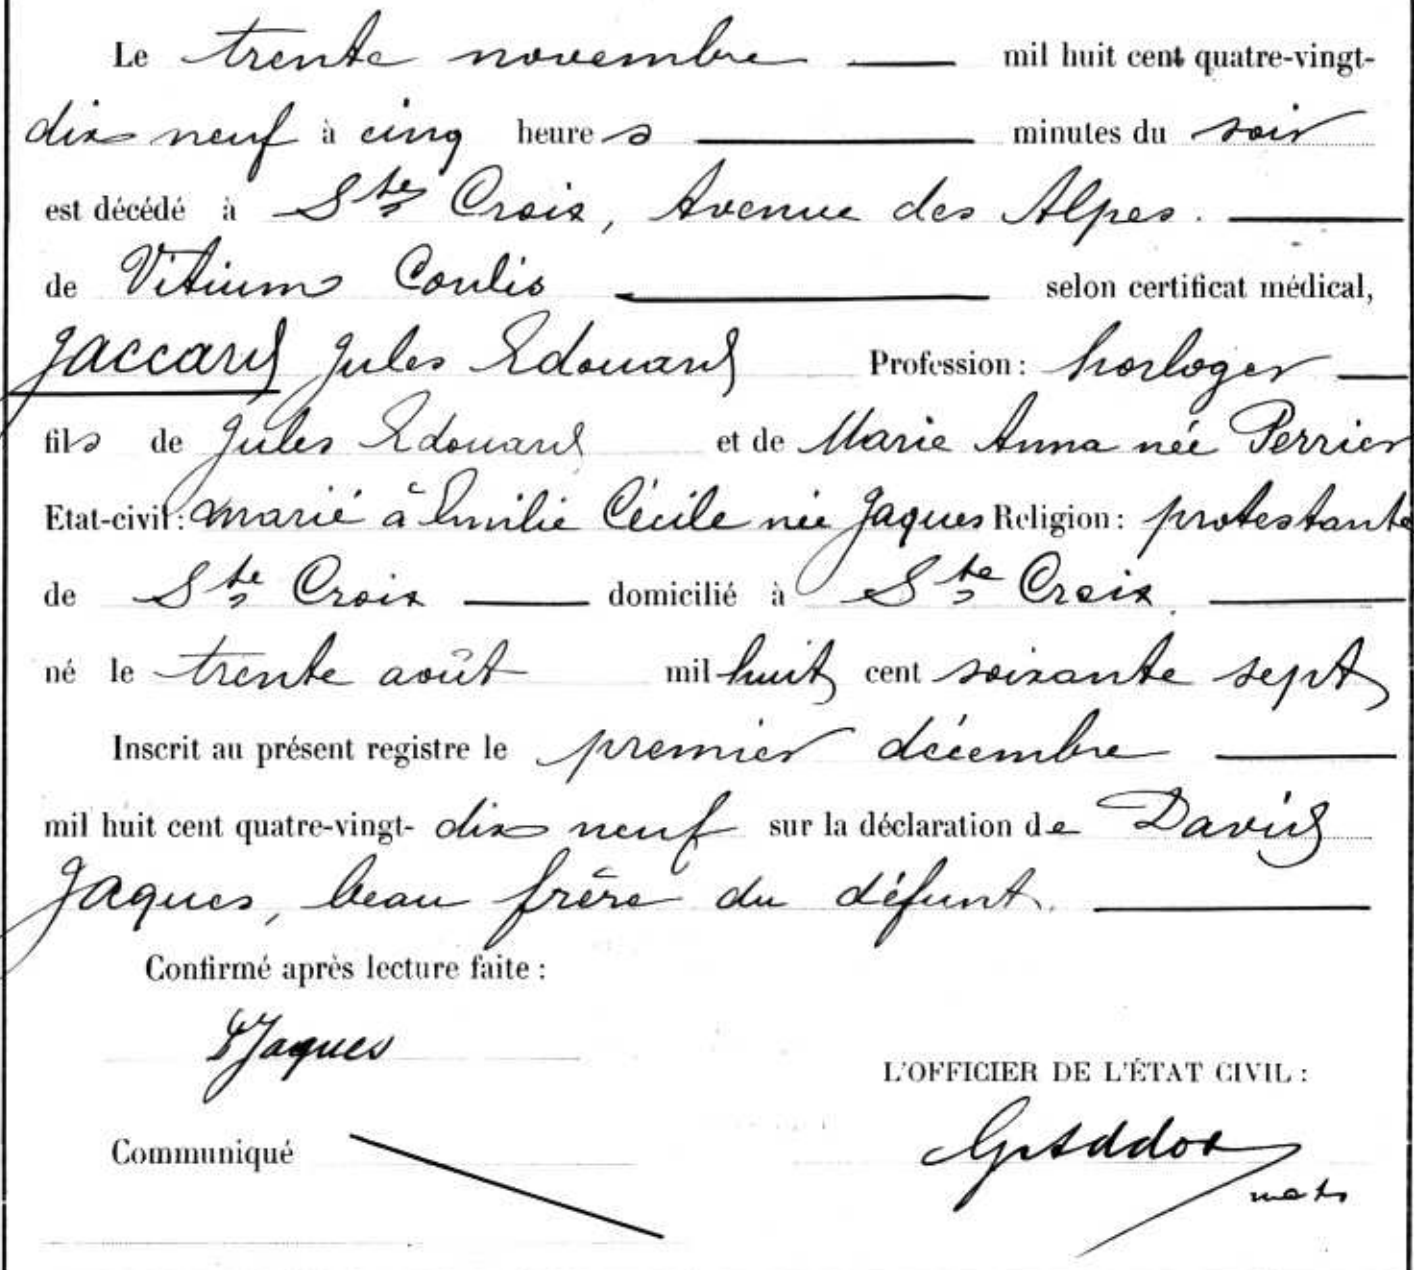 Le trente novembre — mil huit cent quatre-vingt-
dix neuf à cinq heures — minutes du soir
est décédé à Ste Croix, Avenue des Alpes. —
de Vitium Cordis — selon certificat médical,
Jaccard Jules Edouard Profession : horloger —
fils de Jules Edouard et de Marie Anna née Perrier
Etat-civil : marié à Emilie Cécile née Jaques Religion : protestante
de Ste Croix — domicilié à Ste Croix —
né le trente août mil huit cent soixante sept
Inscrit au présent registre le premier décembre —
mil huit cent quatre-vingt- dix neuf sur la déclaration de David
Jaques, beau frère du défunt. —
Confirmé après lecture faite :
DJaques
L'OFFICIER DE L'ÉTAT CIVIL :
Communiqué